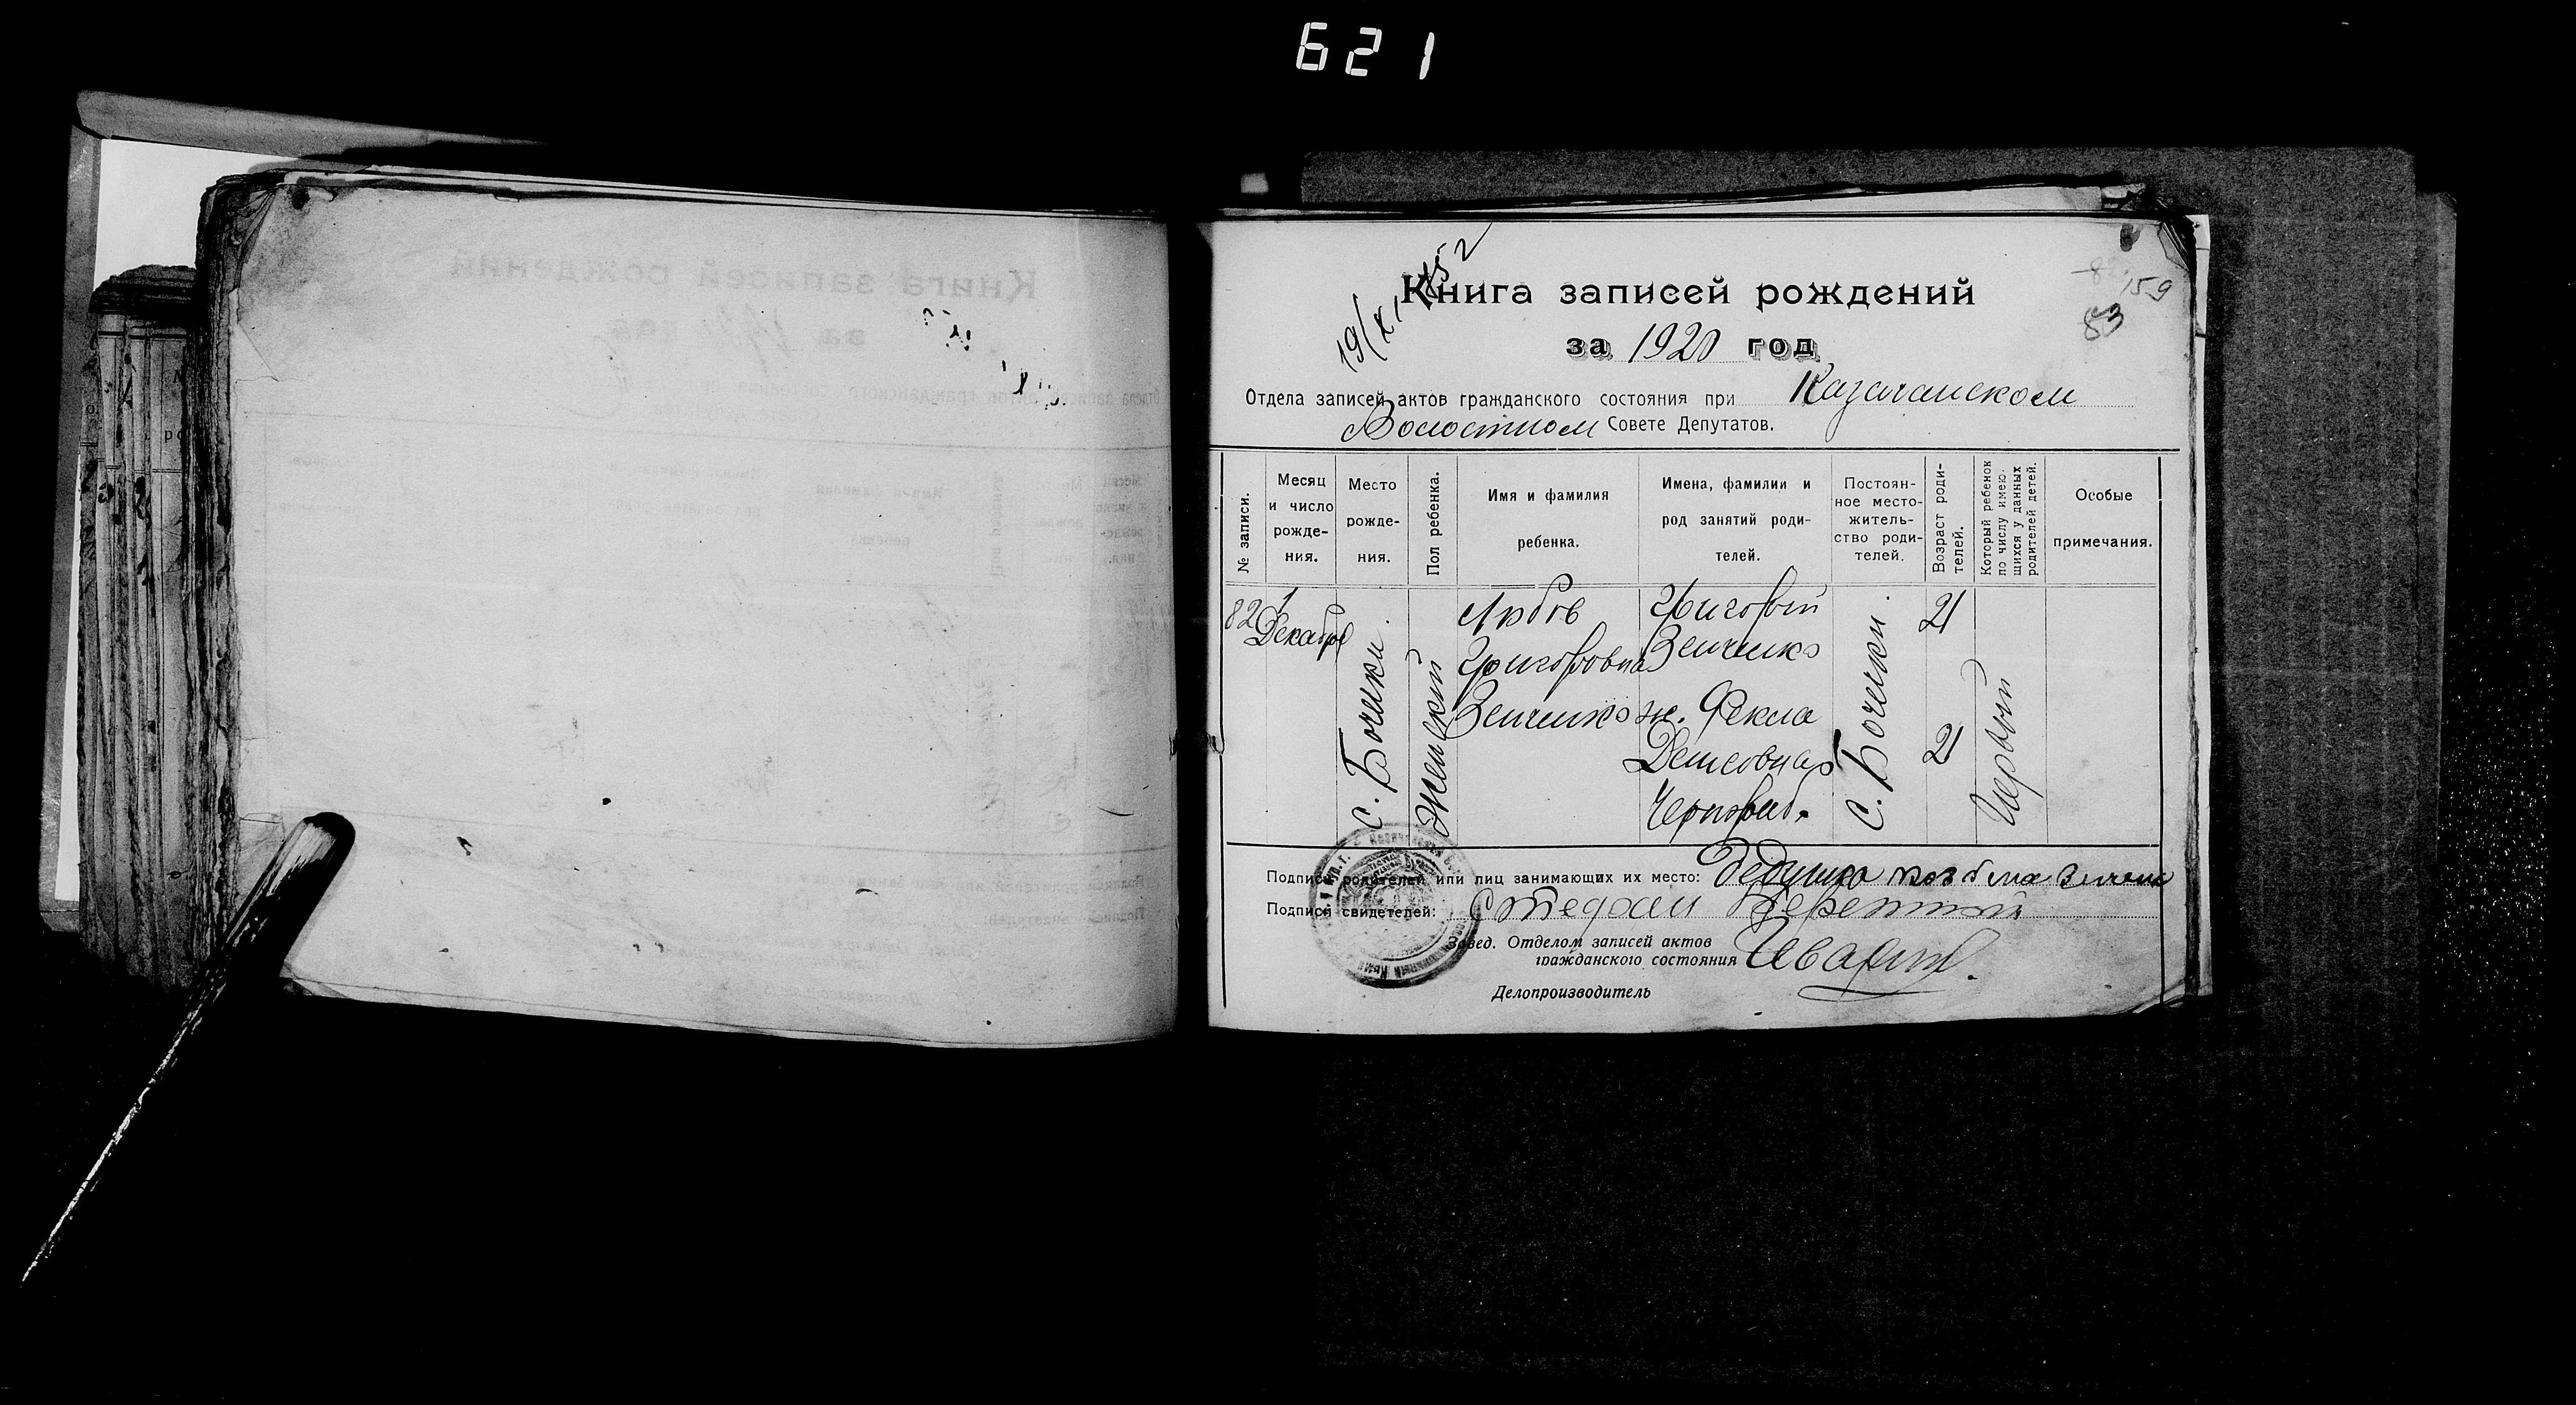 621
19/XI 1952
159
83
Книга записей рождений
за 1920 год
Отдела записей актов гражданского состояния при Казачанском
Волостном Совете Депутатов.
№ записи.
Месяц и число рожде-ния.
Место рожде-ния.
Пол ребенка.
Имя и фамилия ребенка.
Имена, фамилии и род занятий роди-телей.
Постоян-ное место-житель-ство роди-телей.
Возраст роди-телей.
Который ребенок по числу имею-щихся у данных родителей детей.
Особые примечания.
82
1 Декабре
с. Бочики.
Женский
Любов
Григоровна
Зенченко
Григорий
Зенченко
ж. Фекла
Денисовна
с. Бочики.
21
21
Первый
Подписи родителей или лиц занимающих их место: Дедушка
Подписи свидетелей: Стефан
Завед. Отделом записей актов
гражданского состояния
Делопроизводитель